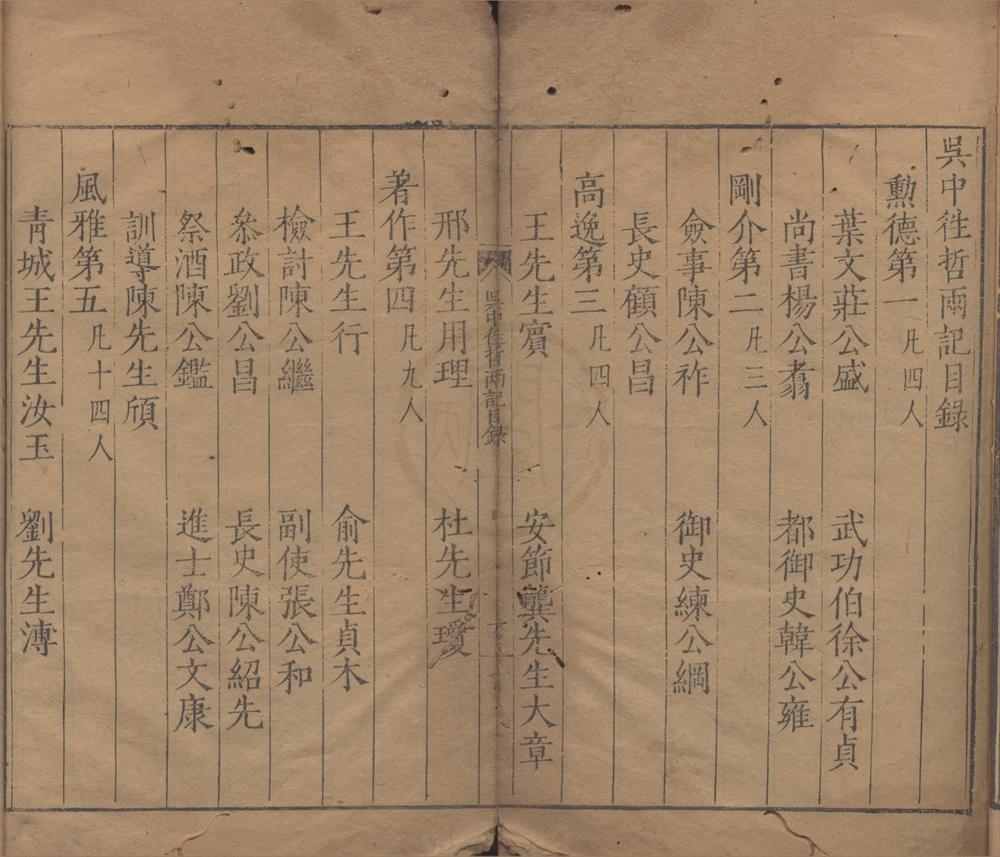 吳中徃哲兩記目錄
勲德第一 凡四人
葉文莊公盛 武功伯徐公有貞
尚書楊公翥 都御史韓公雍
剛介第二 凡三人
僉事陳公祚 御史練公綱
長史顧公昌
高逸第三 凡四人
王先生賓 安節龔先生大章
吳中徃哲兩記目錄
邢先生用理 杜先生瓊
著作第四 凡九人
王先生行 俞先生貞木
檢討陳公繼 副使張公和
叅政劉公昌 長史陳公紹先
祭酒陳公鑑 進士鄭公文康
訓導陳先生頎
風雅第五 凡十四人
青城王先生汝玉 劉先生溥